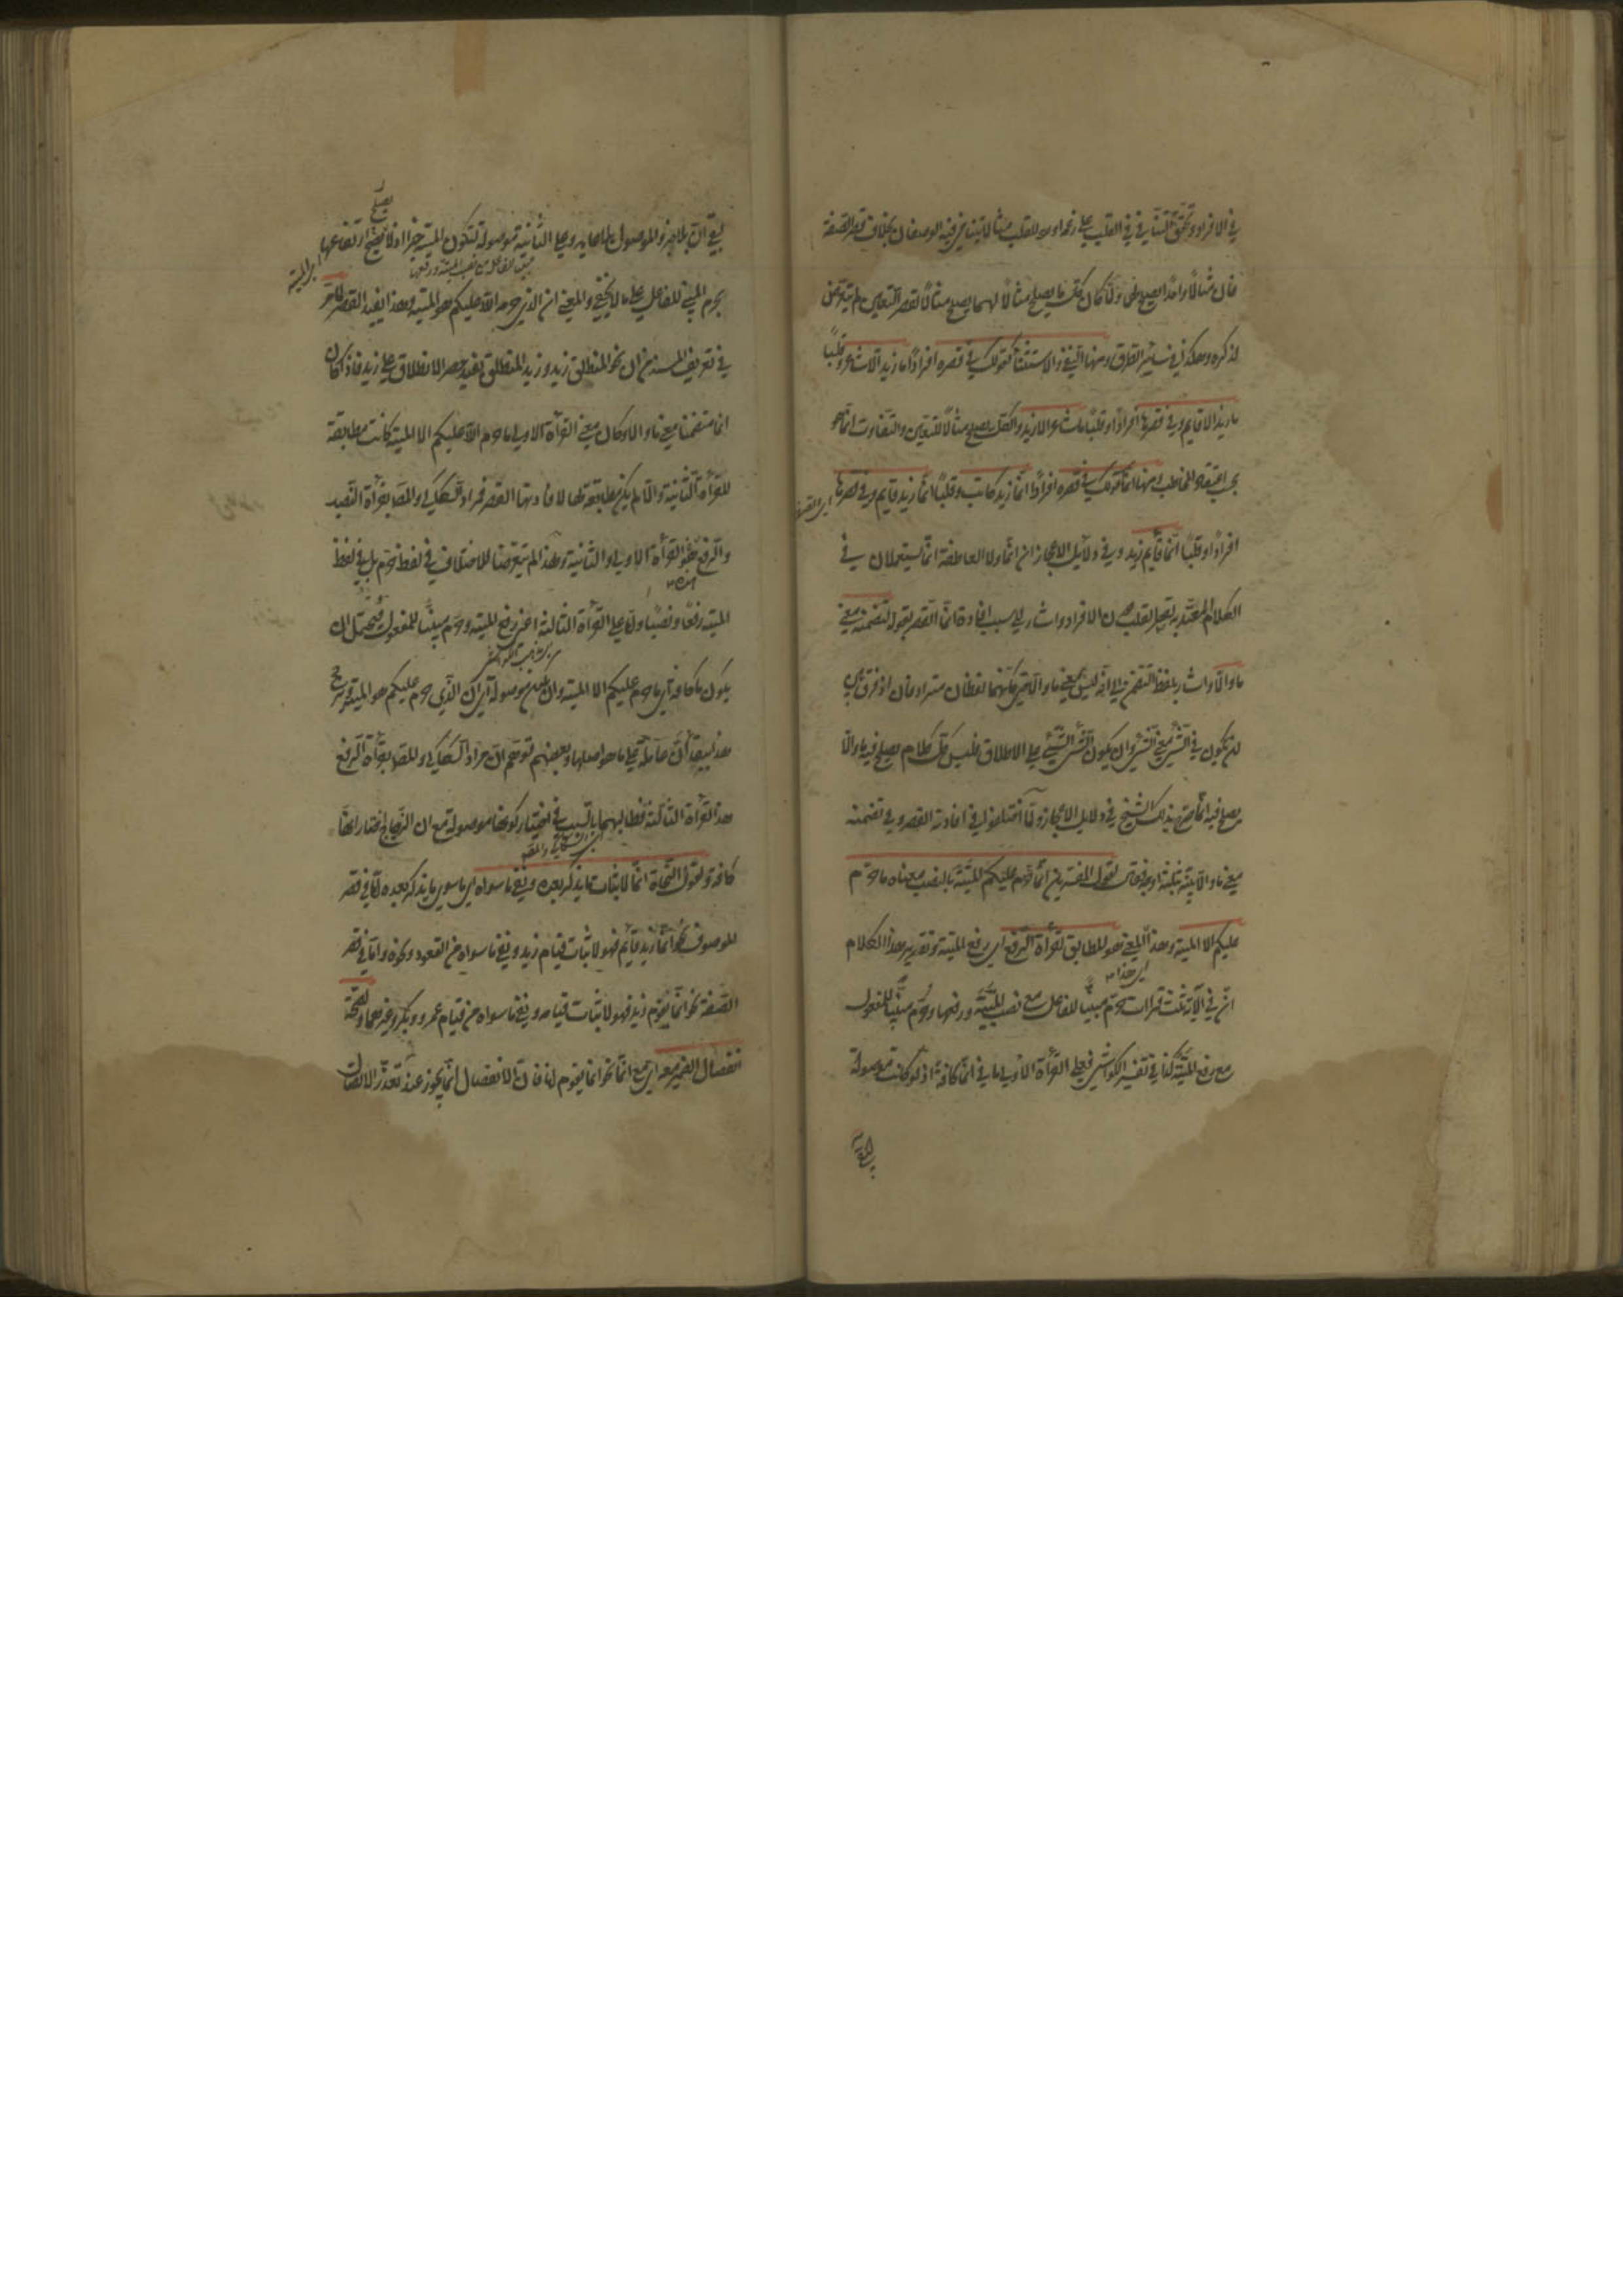 في الافراد وتحقق التنافي في القلب على زعمه اورد للقلب مثالا يتنافى فيه الوصفان بخلاف قصر الصفة
فان مثالا واحدا يصلح لهما ولما كان كل ما يصلح مثالا لهما يصلح مثالا لقصر التعيين لم يتعرض
لذكره وهكذا في سائر الطرق ومنها النفي والاستثناء كقولك في قصره افرادا ما زيد الا شاعر وقلبا
ما زيد الا قايم وفي قصرها افرادا وقلبا ما شاعر الا زيد والكل يصلح مثالا للتعيين والتفاوت انما هو
بحسب اعتقاد المخاطب ومنها انما كقولك في قصره افرادا انما زيد كاتب وقلبا انما زيد قايم وفي قصرها
افرادا وقلبا انما قايم زيد وفي دلائل الاعجاز ان انما ولا العاطفة انما يستعملان في
الكلام المعتد به لقصر القلب دون الافراد واشار الى سبب افادة انما القصر بقوله لتضمنه معنى
ما والا واشار بلفظ التضمن الى انه ليس بمعنى ما والا حتى كانهما لفظان مترادفان اذ فرق بين
ان يكون في الشيء معنى الشيء وان يكون الشيء الشيء على الاطلاق فليس كل كلام يصلح فيه ما والا
يصلح فيه انما صرح بذلك الشيخ في دلايل الاعجاز ولما اختلفوا في افادته القصر وفي تضمنه
معنى ما والا بينه بثلثة اوجه فقال لقول المفسرين انما حرم عليكم الميتة بالنصب معناه ما حرم
عليكم الا الميتة وهذا المعنى هو المطابق لقراءة الرفع اي رفع الميتة وتقرير هذا الكلام
ان في الآية ثلث قراات حرم مبنيا للفاعل مع نصب الميتة ورفعها وحرم مبنيا للمفعول
مع رفع الميتة كذا في تفسير الكواشي فعلى القراءة الاولى ما في انما كافة اذ لو كانت موصولة
لبقي ان بلا خبر والموصول بلا عايد وعلى الثانية موصولة لتكون الميتة خبرا اذ لا يصح ارتفاعها
بحرم المبني للفاعل على ما لا يخفى والمعنى ان الذي حرمه الله عليكم هو الميتة وهذا يفيد القصر لما مر
في تعريف المسند من ان نحو المنطلق زيد وزيد المنطلق يفيد حصر الانطلاق على زيد فاذا كان
انما متضمنا معنى ما والا وكان معنى القراءة الاولى ما حرم الله عليكم الا الميتة كانت مطابقة
للقراءة الثانية والا لم يكن مطابقة لها لافادتها القصر فمراد السكاكي والمص بقراءة النصب
والرفع نحو القراءة الاولى والثانية ولهذا لم يتعرضا للاختلاف في لفظ حرم بل في لفظ
الميتة رفعا ونصبا واما على القراءة الثالثة اعني رفع الميتة وحرم مبنيا للمفعول فيحتمل ان
يكون ما كافة اي ما حرم عليكم الا الميتة وان يكون موصولة اي ان الذي حرم عليكم هو الميتة ويرجح
هذا ببقاء ان عاملة على ما هو اصلها وبعضهم توهم ان مراد السكاكي والمص بقراءة الرفع
هذه القراءة الثالثة فطالبهما بالسبب في اختيار كونها موصولة مع ان الزجاج اختار انها
كافة ولقول النحاة انما لاثبات ما يذكر بعده ونفي ما سواه اي ما سوى ما يذكر بعده اما في قصر
الموصوف نحو انما زيد قايم فهو لاثبات قيام زيد ونفي ما سواه من القعود ونحوه واما في قصر
الصفة نحو انما يقوم زيد فهو لاثبات قيامه ونفي ما سواه من قيام عمرو وبكر وغيرهما ولصحة
انفصال الضمير معه اي مع انما نحو انما يقوم انا فان الانفصال انما يجوز عند تعذر الاتصال